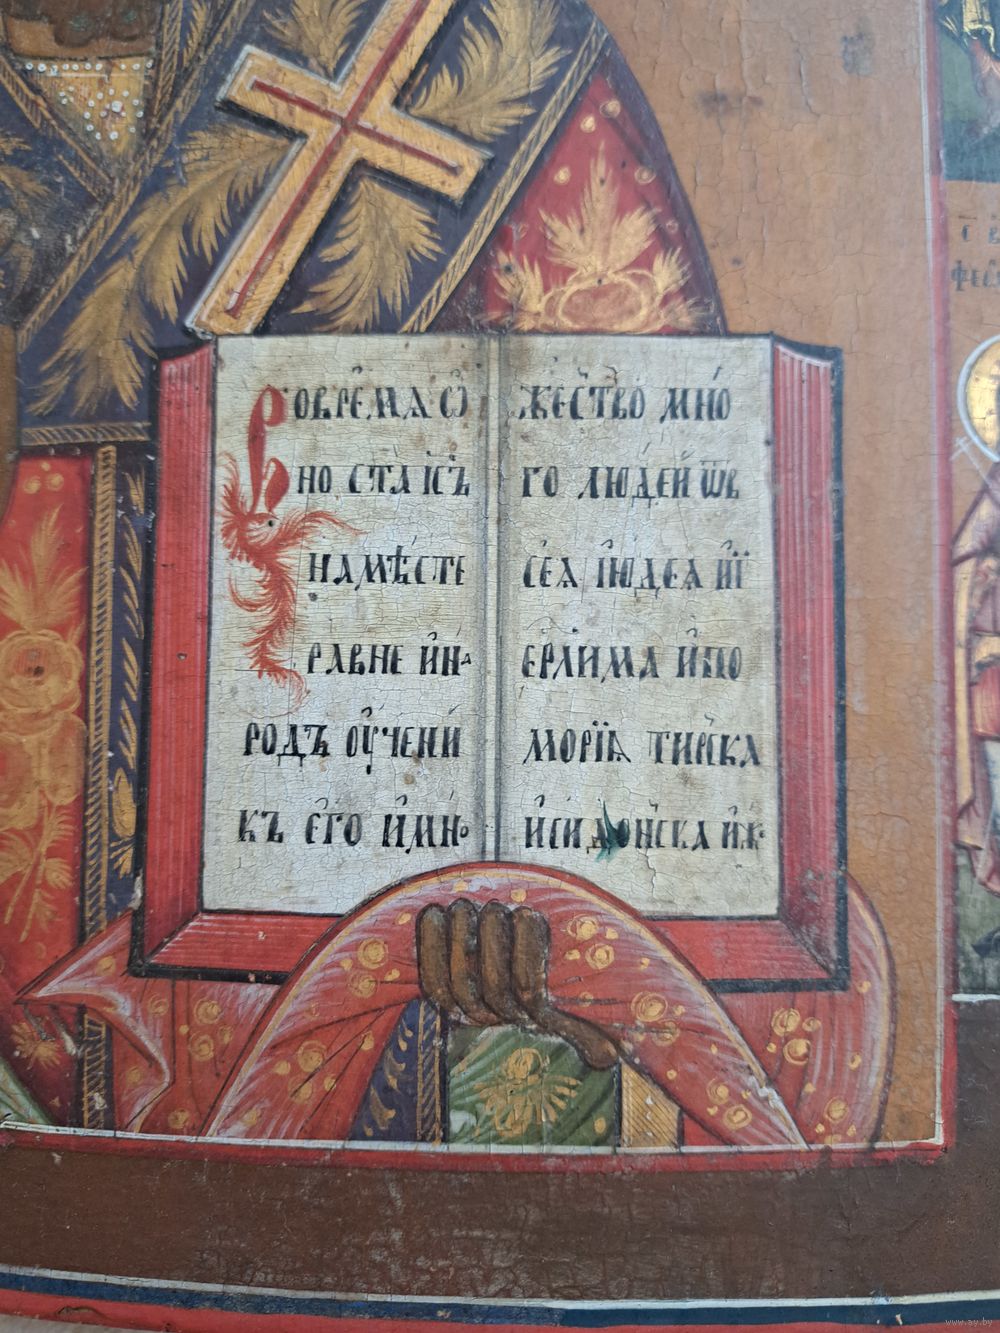 Во вре́мѧ ѻ҆
но ста̀ і҆с҃ъ
на мѣ́сте
равне и҆ на
родъ оу҆чени
къ є҆гѡ̀ и҆ мно
жество мно́
го люде́й ѿ в
сеѧ̀ і҆юдеѧ и҆ ї
ерл҃има и҆ по
морїѧ тирска
и҆ сидонска и҆ж
www.ay.by